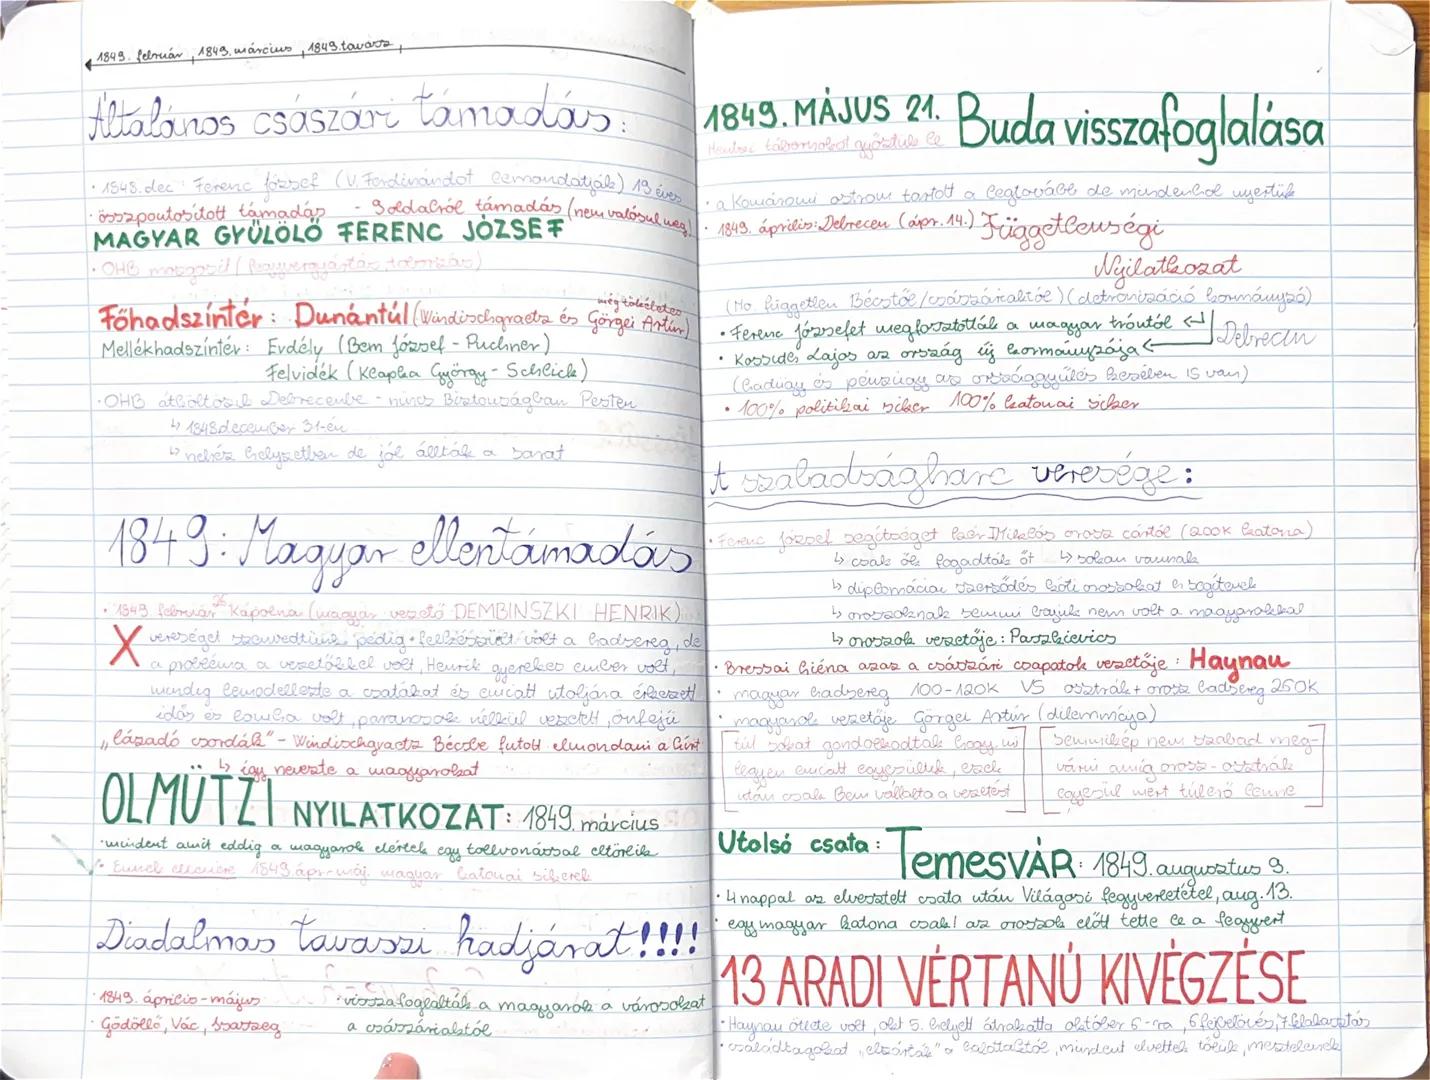 1849. február, 1849. március, 1849. tavasz,
Általános császári támadás:
· 1848. dec : Ferenc József (V. Ferdinándot lemondatják) 19 éves
· összpontosított támadás - 9 oldalról támadás (nem valósul meg)
MAGYAR GYŰLÖLŐ FERENC JÓZSEF
· OHB mozgósít (fegyvergyártás, toborzás)
még tökéletes
Főhadszíntér: Dunántúl (Windischgraetz és Görgei Artúr)
Mellékhadszíntér: Erdély (Bem József - Puchner)
Felvidék (Klapka György - Schlick)
· OHB átköltözik Debrecenbe - nincs Biztonságban Pesten
↳ 1848 december 31-én
↳ nehéz helyzetben de jól állták a sarat
1849: Magyar ellentámadás
· 1849 február 26 Kápolna (magyar vezető DEMBINSZKI HENRIK)
X vereséget szenvedtünk pedig felkészült volt a hadsereg, de
a probléma a vezetőkkel volt, Henrik gyerekes ember volt,
mindig lemodellezte a csatákat és emiatt utoljára érkezett
idős és lomha volt, parancsok nélkül vezetett, önfejű
„lázadó csordák" - Windischgraetz Bécsbe futott elmondani a hírt
↳ így nevezte a magyarokat
OLMÜTZI NYILATKOZAT: 1849. március
· mindent amit eddig a magyarok elértek egy tollvonással eltörlik
· Ennek ellenére 1849 ápr-máj. magyar katonai sikerek
Diadalmas tavaszi hadjárat!!!!
· 1849. április-május
· Gödöllő, Vác, Isaszeg
· visszafoglalták a magyarok a városokat
a császáriaktól
1849. MÁJUS 21. Buda visszafoglalása
Hentzi tábornokot győztük le
· a Komáromi ostrom tartott a legtovább de mindenhol nyertük
· 1849. április: Debrecen (ápr. 14.) Függetlenségi
Nyilatkozat
(Mo független Bécstől/császáriaktól) (detronizáció kormányzó)
· Ferenc Józsefet megfosztották a magyar tróntól ↵
· Kossuth Lajos az ország új kormányzója ← Debrecen
(hadügy és pénzügy az országgyűlés kezében is van)
· 100% politikai siker 100% katonai siker
A szabadságharc veresége:
· Ferenc József segítséget kér I Miklós orosz cártól (200K katona)
↳ csak ők fogadták őt ↳ sokan vannak
↳ diplomáciai szerződés köti oroszokat h segítenek
↳ oroszoknak semmi bajuk nem volt a magyarokkal
↳ oroszok vezetője: Paszkievics
· Bressai hiéna azaz a császári csapatok vezetője: Haynau
· magyar hadsereg 100-120K VS osztrák + orosz hadsereg 250K
· magyarok vezetője Görgei Artúr (dilemmája)
túl sokat gondolkodtak hogy mi
legyen emiatt egyesültek, ezek
után csak Bem vállalta a vezetést
semmikép nem szabad meg-
várni amíg orosz-osztrák
egyesül mert túlerő lenne
Utolsó csata: TEMESVÁR: 1849. augusztus 9.
· 4 nappal az elvesztett csata után Világosi fegyverletétel, aug. 13.
· egy magyar katona csak! az oroszok előtt tette le a fegyvert
13 ARADI VÉRTANÚ KIVÉGZÉSE
· Haynau ötlete volt, okt 5. helyett átrakatta október 6-ra, 6 főbelövés, 7 felakasztás
· családtagokat „elzárták" a halottaktól, mindent elvettek tőlük, mesztelenek